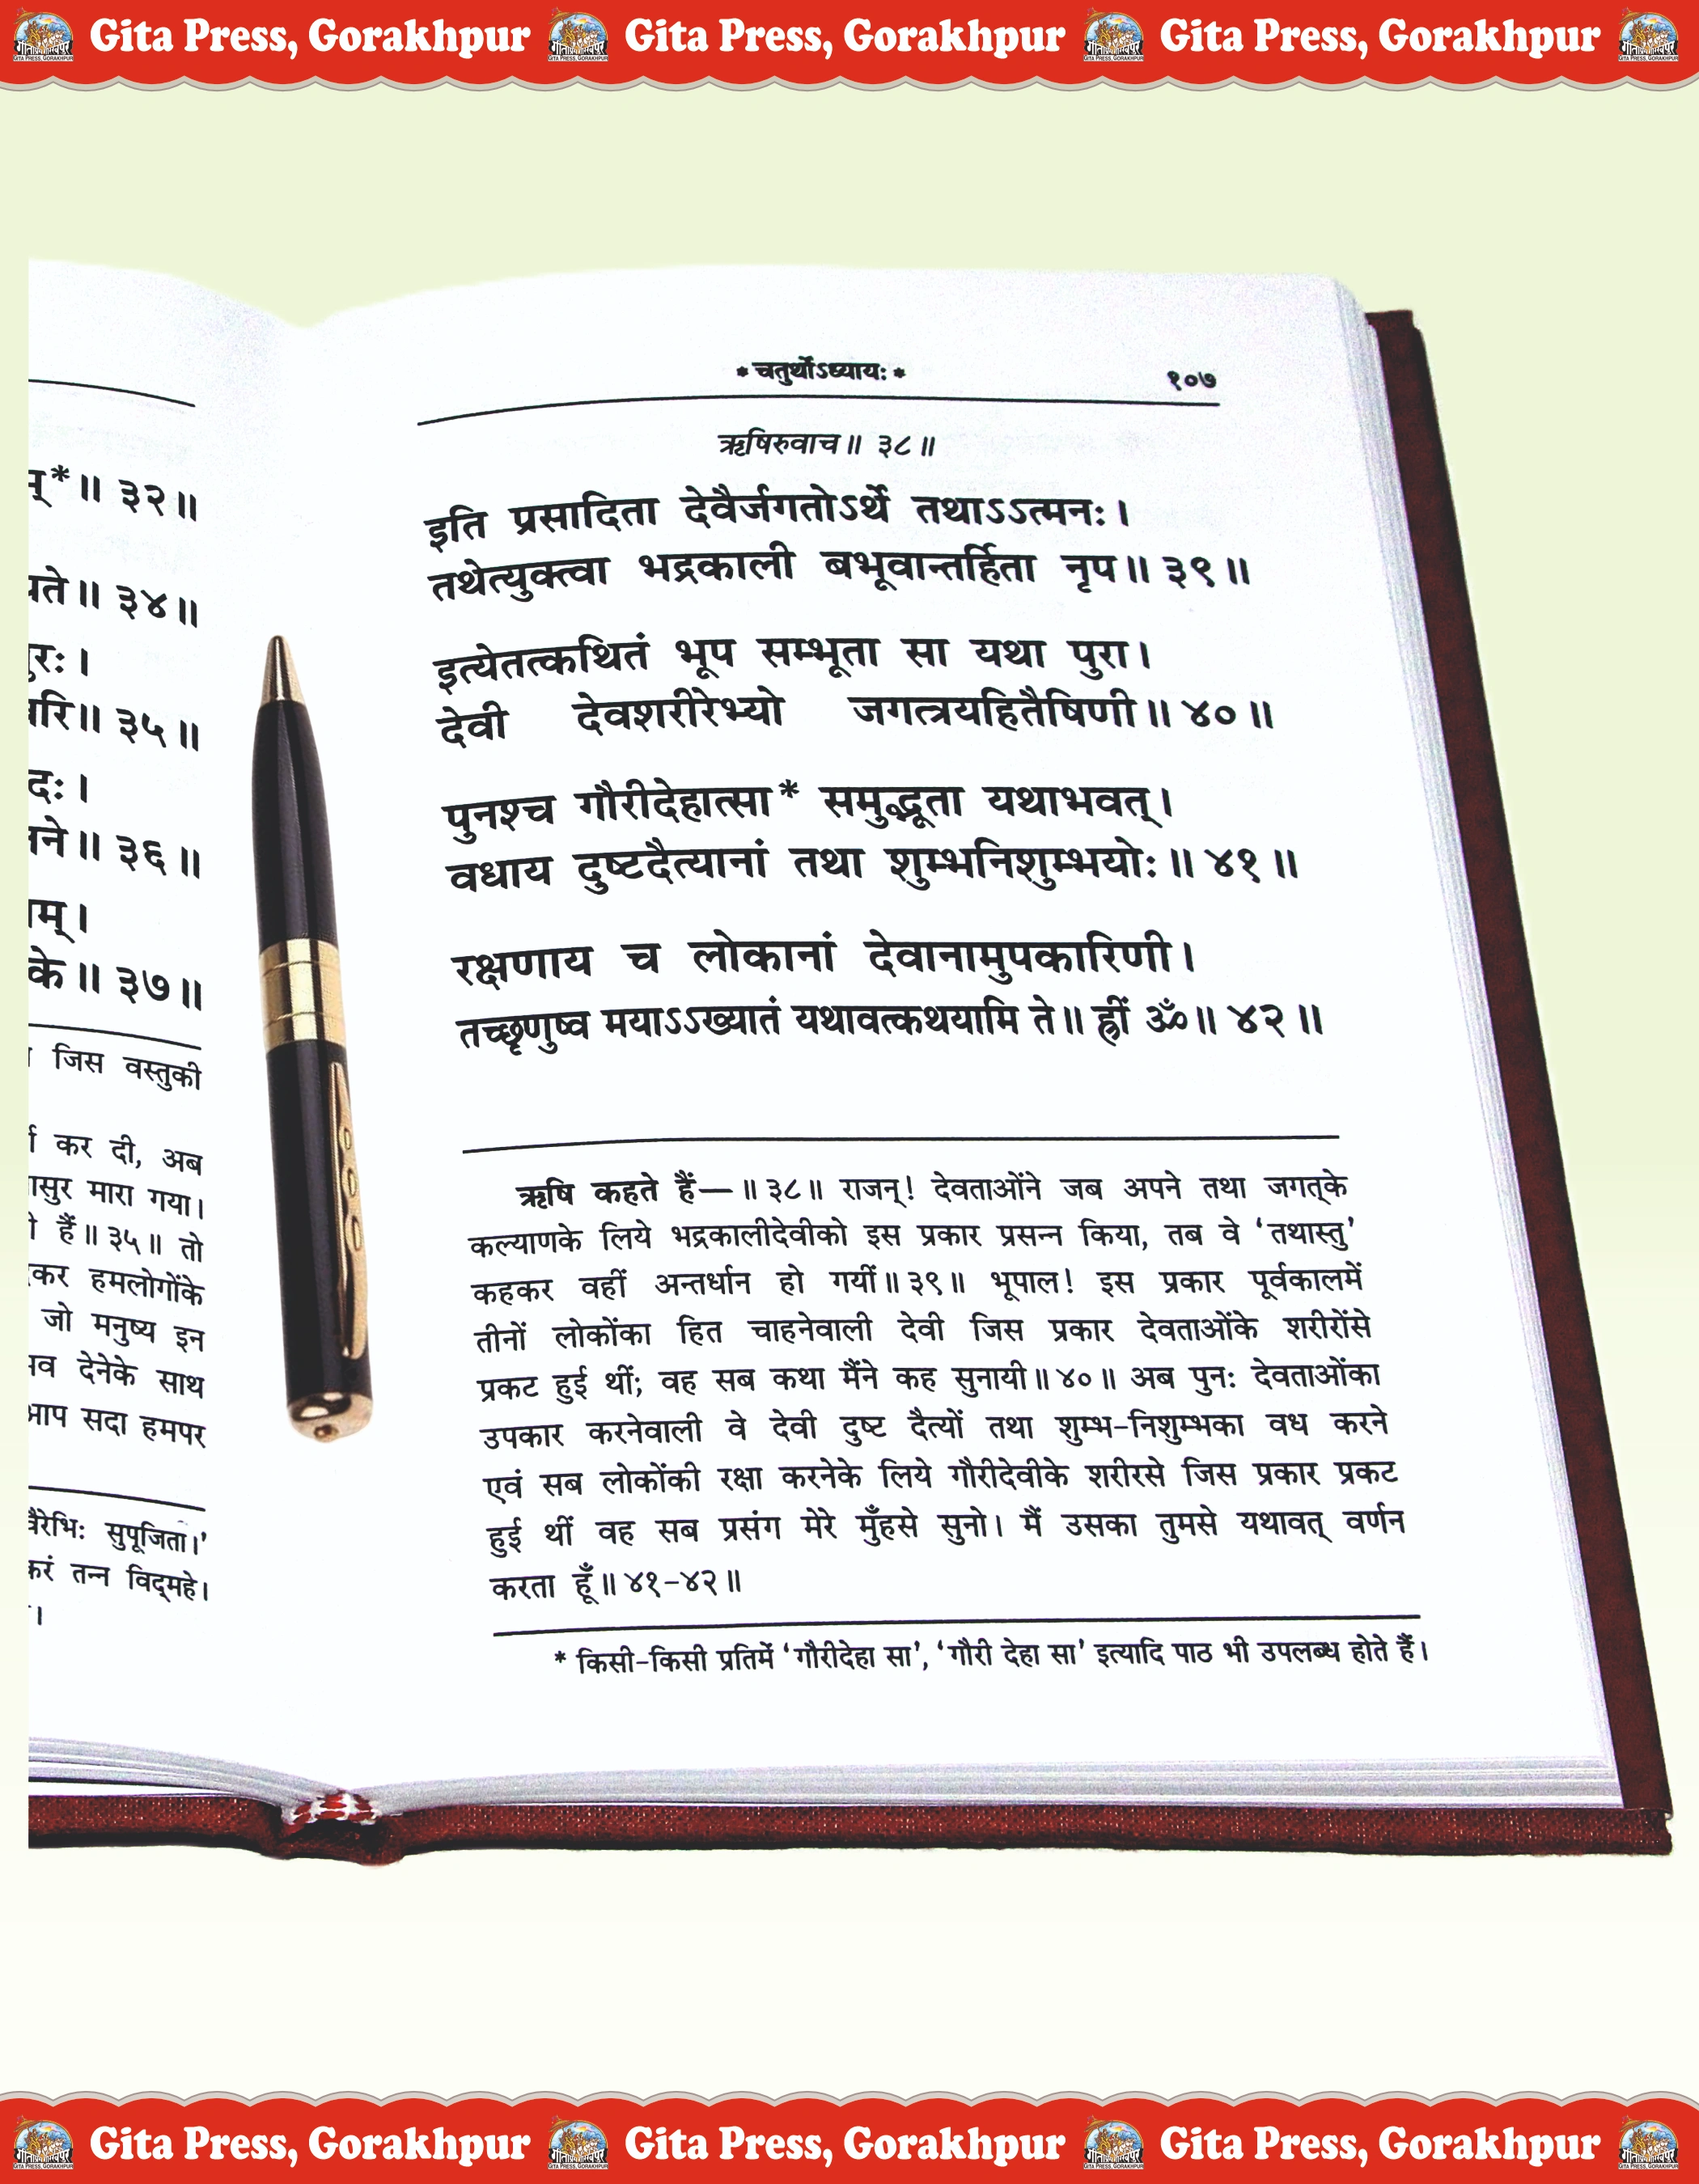 Gita Press, Gorakhpur Gita Press, Gorakhpur Gita Press, Gorakhpur
॥ ३२॥
॥ ३४॥
॥ ३५॥
॥ ३६॥
के॥ ३७॥
जिस वस्तुकी
कर दी, अब
मारा गया।
हैं॥ ३५॥ तो
हमलोगोंके
जो मनुष्य इन
देनेके साथ
आप सदा हमपर
सुपूजिता।'
तन्न विद्महे।
* चतुर्थोऽध्यायः * १०७
ऋषिरुवाच॥ ३८॥
इति प्रसादिता देवैर्जगतोऽर्थे तथाऽऽत्मनः।
तथेत्युक्त्वा भद्रकाली बभूवान्तर्हिता नृप॥ ३९॥
इत्येतत्कथितं भूप सम्भूता सा यथा पुरा।
देवी देवशरीरेभ्यो जगत्त्रयहितैषिणी॥ ४०॥
पुनश्च गौरीदेहात्सा* समुद्भूता यथाभवत्।
वधाय दुष्टदैत्यानां तथा शुम्भनिशुम्भयोः॥ ४१॥
रक्षणाय च लोकानां देवानामुपकारिणी।
तच्छृणुष्व मयाऽऽख्यातं यथावत्कथयामि ते॥ ह्रीं ॐ॥ ४२॥
ऋषि कहते हैं—॥ ३८॥ राजन्! देवताओंने जब अपने तथा जगत्‌के
कल्याणके लिये भद्रकालीदेवीको इस प्रकार प्रसन्न किया, तब वे 'तथास्तु'
कहकर वहीं अन्तर्धान हो गयीं॥ ३९॥ भूपाल! इस प्रकार पूर्वकालमें
तीनों लोकोंका हित चाहनेवाली देवी जिस प्रकार देवताओंके शरीरोंसे
प्रकट हुई थीं; वह सब कथा मैंने कह सुनायी॥ ४०॥ अब पुनः देवताओंका
उपकार करनेवाली वे देवी दुष्ट दैत्यों तथा शुम्भ-निशुम्भका वध करने
एवं सब लोकोंकी रक्षा करनेके लिये गौरीदेवीके शरीरसे जिस प्रकार प्रकट
हुई थीं वह सब प्रसंग मेरे मुँहसे सुनो। मैं उसका तुमसे यथावत् वर्णन
करता हूँ॥ ४१-४२॥
* किसी-किसी प्रतिमें 'गौरीदेहा सा', 'गौरी देहा सा' इत्यादि पाठ भी उपलब्ध होते हैं।
Gita Press, Gorakhpur Gita Press, Gorakhpur Gita Press, Gorakhpur